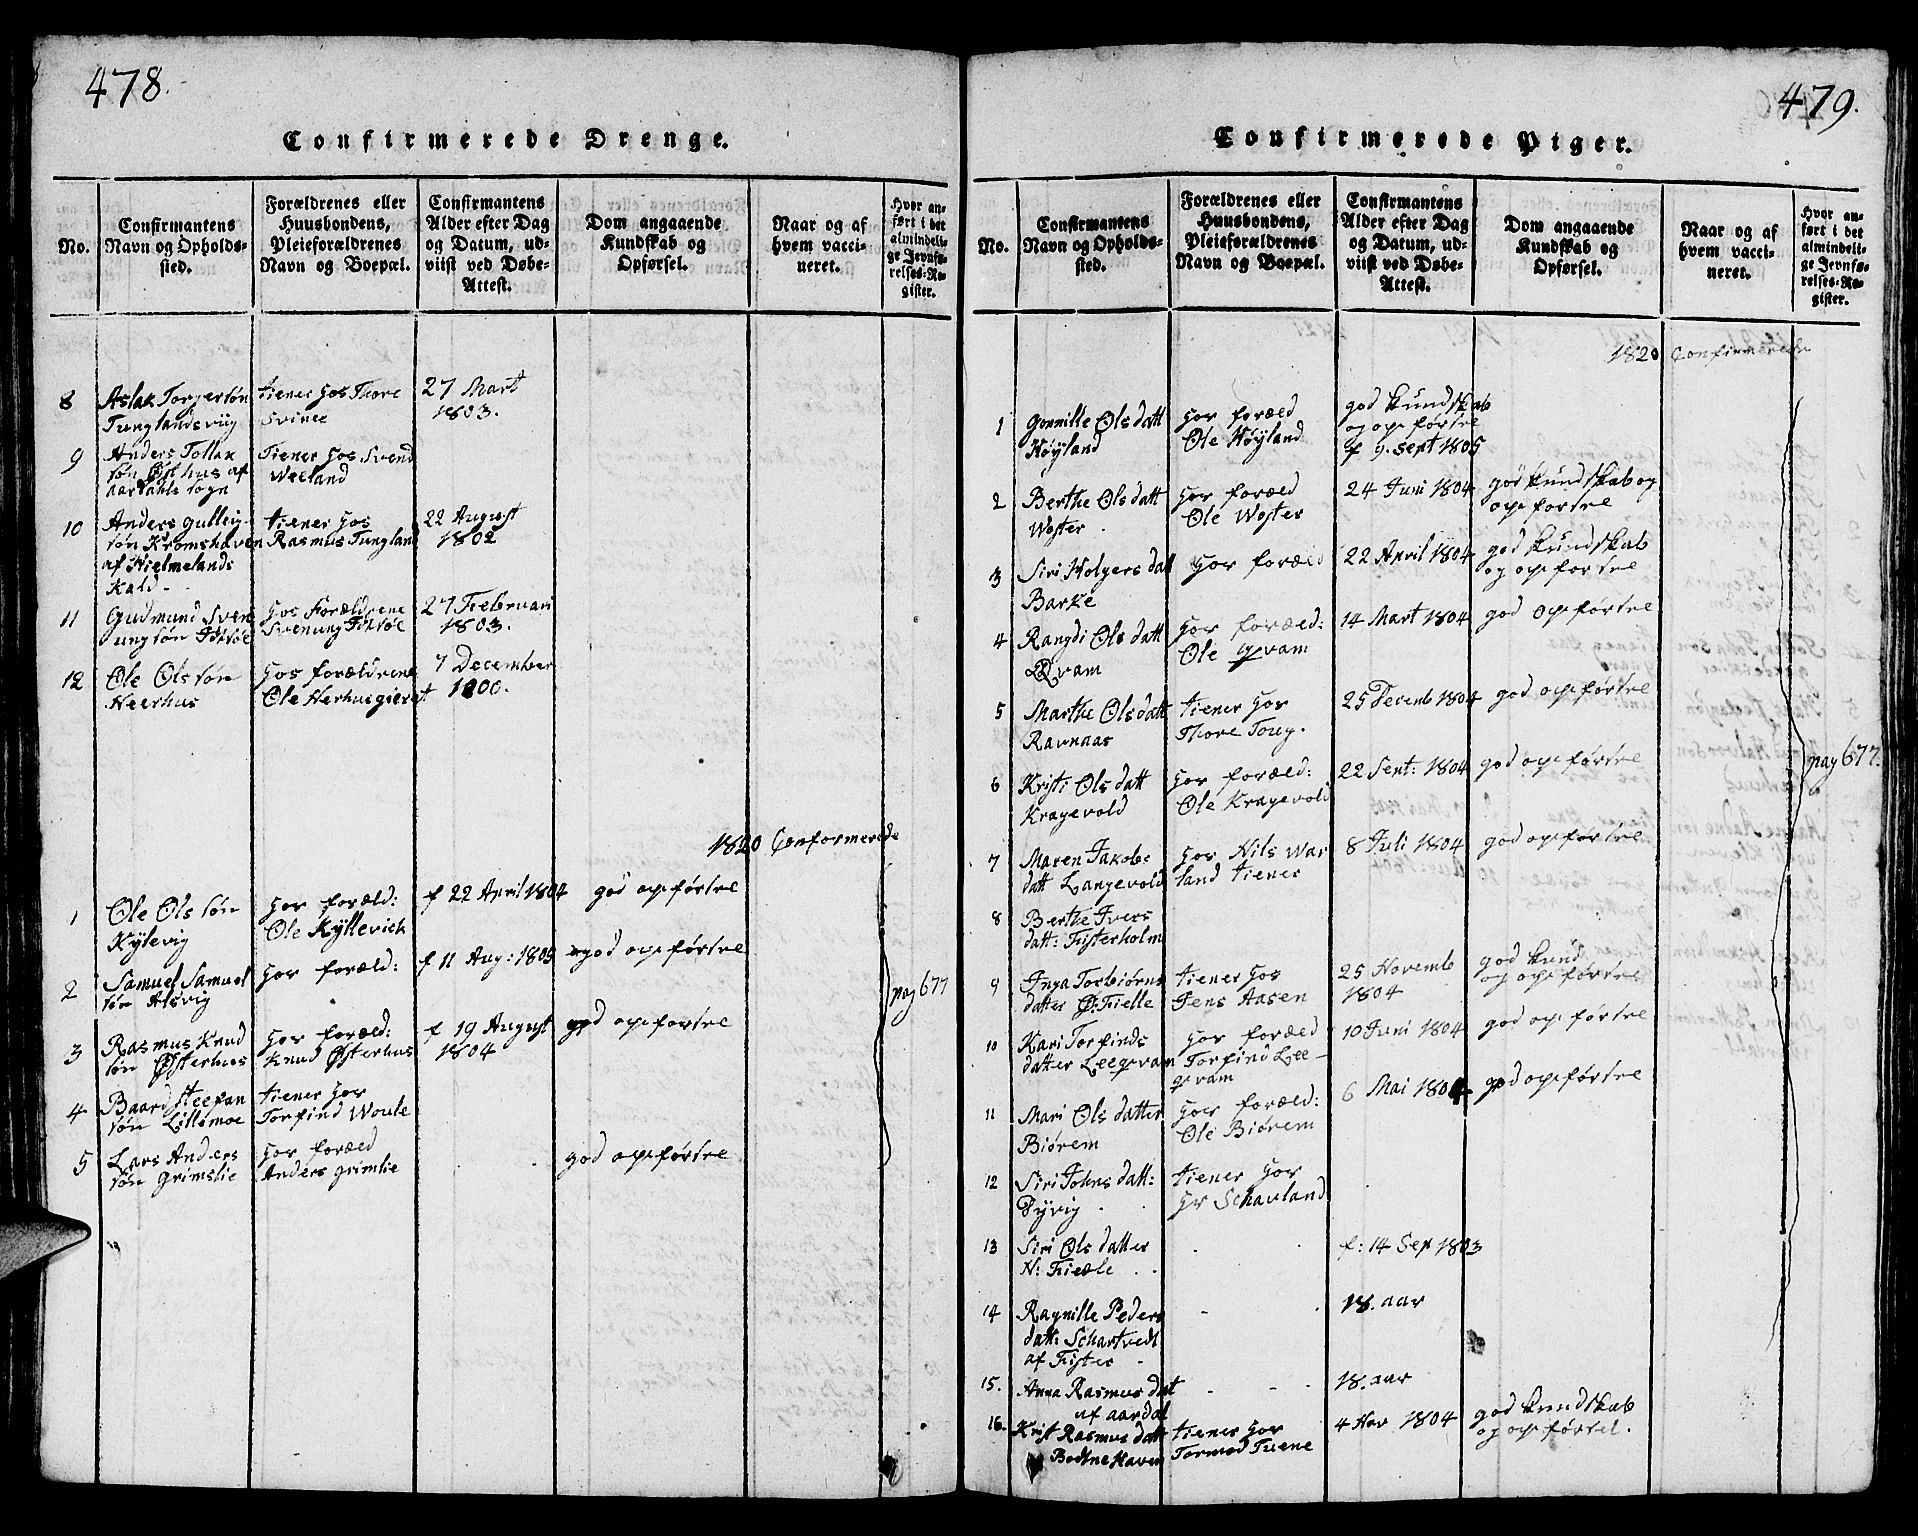 478.
Confirmerede Drenge.
No.
Confirmantens
Navn og Opholds-
sted.
Forældrenes eller
Huusbondens,
Pleieforældrenes
Navn og Boepæl.
Confirmantens
Alder efter Dag
og Datum, ud-
viist ved Døbe-
Attest.
Dom angaaende
Kundskab og
Opførsel.
Naar og af
hvem vacci-
neret.
Hvor an-
ført i det
almindeli-
ge Jevnfø-
relses-Re-
gister.
8
Aslak Torgersøn
Tunglandsviig
tiener hos Thore
Svinee
27 Mart
1803.
9
Anders Tollak
søn Østhus af
aardahls sogn
Tiener hos Svend
Weeland
10
Anders gulleig-
søn Kromshaven
af Hielmelands
Kald.
tiener hos
Rasmus Tungland
22 August
1802
11
Gudmund Sven
ungsøn
hos Forældrene
Svenung
27 Februari
1803.
12
Ole Olssøn
Heerhus
hos forældrene
Ole Herhusgieret
7 December
1800.
1820 Conformerede
1
Ole Olssøn
Kylevig
hor foræld:
Ole Kyllevich
f 22 April 1804
god opførtre
2
Samuel Samuel
søn Alsvig
hor foræld:
f 11 Aug: 1805
god opførtre
pag 677
3
Rasmus Knud
søn Østerhus
hor foræld:
Knud Østerhus
f 19 August
1804
god opførtre
4
Baard Steepan
søn Lillemoe
tiener hor
Torfind Woule
5
Lars Anders
søn Grimslie
hor foræld
Anders grimlie
god opførtre
479.
Confirmerede Piger.
No.
Confirmantens
Navn og Opholds-
sted.
Forældrenes eller
Huusbondens,
Pleieforældrenes
Navn og Boepæl.
Confirmantens
Alder efter Dag
og Datum, ud-
viist ved Døbe-
Attest.
Dom angaaende
Kundskab og
Opførsel.
Naar og af
hvem vacci-
neret.
Hvor an-
ført i det
almindeli-
ge Jevnfø-
relses-Re-
gister.
1820 Confirmerede
1
Gonnille Olsdatt
Høyland
hor foræld
Ole Høyland
god kundskab
og opførtre
f 9. Sept 1805
2
Berthe Olsdatt
Woster
hor foræld
Ole Woster
24 Juni 1804
god kundskab og
opførtre
3
Siri Holgersdatt
Barke
hor foræld
22 April 1804
god kundskab
og opførtre
4
Rangdi Olsdatt
Qvam
hor foræld:
Ole qvam
14 Mart 1804
god opførtre
5
Marthe Olsdatt
Ravnaas
tiener hor
Thore Toug.
25 Decemb 1804
god opførtre
6
Kristi Olsdatt
Kragevold
hor foræld:
Ole Kragevold
22 Sept: 1804
god opførtre
pag 677.
7
Maren Jakobs
datt Langevold
hor Nils War
land tiener
8 Juli 1804
god opførtre
8
Berthe Ivers
datt: Fisterholm
9
Inga Torbiørns
datter Ø: Fielle
tiener hos
Jens Aasen
25 Novemb
1804
god kund
og opførtre
10
Kari Torfinds
datter Leeqvam
hor foræld
Torfind Lee-
qvam
10 Juni 1804
god opførtre
11
Mari Olsdatter
Biørem
hor foræld:
Ole Biørem
6 Mai 1804
god opførtre
12
Siri Johns datt:
Dyvig
tiener hor
hr Schauland
13
Siri Olsdatter
N: Fieæle
f: 14 Sep 1803
14
Ragnille Peders
datt: Schartvedt
af Fister
18. aar
15.
Anna Rasmus dat
af aardal
18. aar
16.
Krist Rasmusdatt
Bodtnehaven
tiener hor
Tormod Tuene
4 Nov 1804
god kundskab
og opførtel.